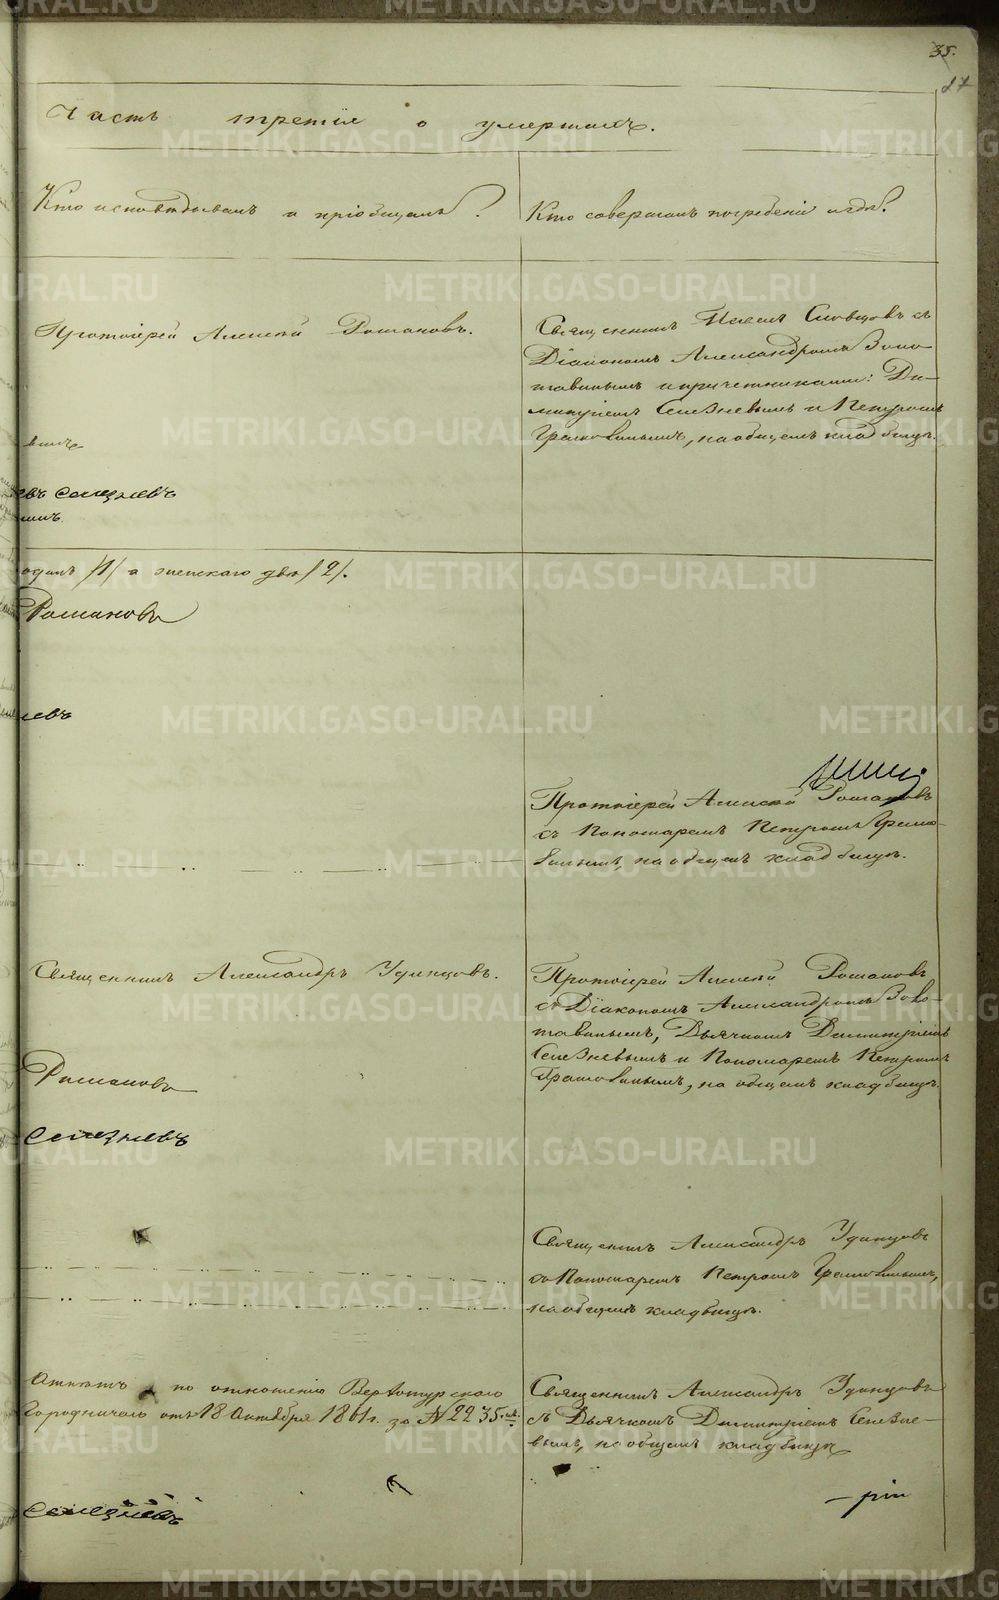 35.
27
Часть третія о умершихъ.
Кто исповѣдывалъ и пріобщалъ?
Кто совершалъ погребеніе и гдѣ?
Протоіерей Алексій Романовъ.
Священникъ Словцовъ съ
Діакономъ Александромъ Золо-
тавинымъ и причетниками: Ди-
митріемъ Селезневымъ и Петромъ
Грамолинымъ, на общемъ кладбищѣ.
въ Селезневъ
одинъ /1/ а женскаго двѣ /2/.
Романовъ
невъ
Протоіерей Алексій Романовъ
съ Пономаремъ Петромъ Грамо-
линымъ, на общемъ кладбищѣ.
Священникъ Александръ Удинцовъ.
Протоіерей Алексій Романовъ
съ Діакономъ Александромъ Золо-
тавинымъ, Дьячкомъ Димитріемъ
Селезневымъ и Пономаремъ Петромъ
Грамолинымъ, на общемъ кладбищѣ.
Романовъ
Селезневъ
Священникъ Александръ Удинцовъ
съ Пономаремъ Петромъ Грамолинымъ,
на общемъ кладбищѣ.
Отпѣтъ по отношенію Верхотурскаго
Городничаго отъ 18 Октября 1861 г. за № 2235.
Священникъ Александръ Удинцовъ
съ Дьячкомъ Димитріемъ Селезне-
вымъ, на общемъ кладбищѣ
Селезневъ
METRIKI.GASO-URAL.RU